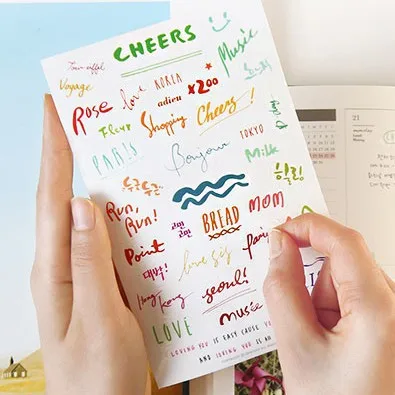 CHEERS
Tour eiffel
Voyage
Musée
love KOREA
Rose
adieu x200
Shopping
Cheers!
PARIS
Bonjour
TOKYO
Milk
두근두근
힐링
Run,
Run!
BREAD
MOM
Point
대박!
love
Hong Kong
seoul!
LOVE
musée
LOVING YOU IS EASY CAUSE
AND LOVING YOU IS
21